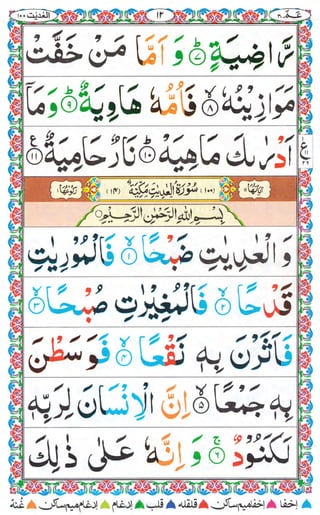 العٰديٰت ١٠٠
١٢
عـمّ ٣٠
رَّاضِيَةٍ ۝٧ وَاَمَّا مَنْ خَفَّتْ
مَوَازِيْنُهٗ ۝٨ فَاُمُّهٗ هَاوِيَةٌ ۝٩ وَمَاۤ
اَدْرٰىكَ مَاهِيَهْ ۝١٠ نَارٌ حَامِيَةٌ ۝١١
اٰيَاتُهَا ١١ (١٠٠) سُوْرَةُ الْعٰدِيٰتِ مَكِّيَّةٌ (١٤) رُكُوْعُهَا
بِسْمِ اللّٰهِ الرَّحْمٰنِ الرَّحِيْمِ
وَالْعٰدِيٰتِ ضَبْحًا ۝١ فَالْمُوْرِيٰتِ
قَدْحًا ۝٢ فَالْمُغِيْرٰتِ صُبْحًا ۝٣
فَاَثَرْنَ بِهٖ نَقْعًا ۝٤ فَوَسَطْنَ
بِهٖ جَمْعًا ۝٥ اِنَّ الْاِنْسَانَ لِرَبِّهٖ
لَكَنُوْدٌ ۝٦ وَاِنَّهٗ عَلٰى ذٰلِكَ
اخفا اخفامیم ساکن قلقله قلب ادغام ادغام میم ساکن غنه